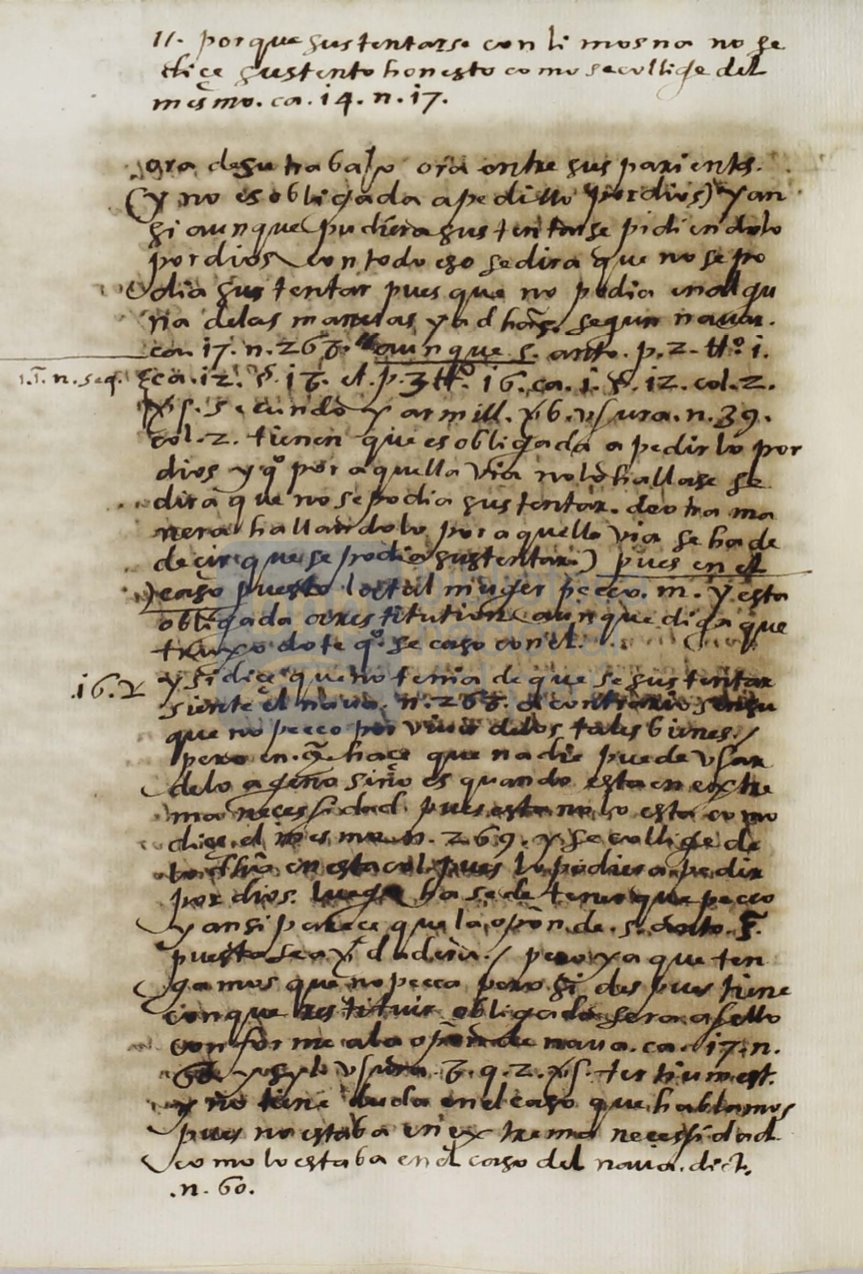 11. porque sustentarse con limosna no se
diçe sustento honesto como se collige del
mesmo. ca. 14. n. 17.
gra de su trabajo ora entre sus parientes.
(y no es obligada a pedillo por dios) y an
si aunque pudiera sustentarse pidiendolo
por dios con todo eso se dira que no se po
dia sustentar pues que no podia en algu
na de las maneras ya dhas. segun nauar.
ca. 17. n. 268. aunque s. anto. p. 2. tt.º 1.
1.T. n. seq.
ca. 12. §. 16. et. p. 3. tt.º 16. ca. 1. §. 12. col. 2.
secundo y armill. vsura. n. 39.
col. 2. tienen que es obligada a pedirlo por
dios y q.º por aquella via no lo hallase se
dira que no se podia sustentar. de otra ma
nera hallandolo por aquella via se ha de
decir que se podia sustentar) pues en el
caso puesto la tal muger pecco. m. y esta
obligada a restitution aunque diga que
truxo dote q.º se caso con el.
.16. y si diçe que no tenia de que se sustentar
siente el naua. n. 268.
que no pecco por viuir de los tales bienes /
pero en haçe que nadie puede vsar
delo ageno sino es quando esta en extre
ma necessidad pues esta no lo esta como
diçe el mesmo n. 269. y se collige de
lo en esta col. pues lo pudiera pedir
por dios. luego ha se de tener que pecco
y ansi parece que la opon. de. s. anto.
puesta sea / pero ya que ten
gamos que no pecca pero si despues tiene
con que restituir obligada sera a sello
conforme a la opon de naua. ca. 17. n.
vsura. 6. q. 2. tertium est.
y no tiene duda en el caso que hablamos
pues no estaba en extrema necessidad
como lo estaba en el caso del naua. dict.
.n. 60.